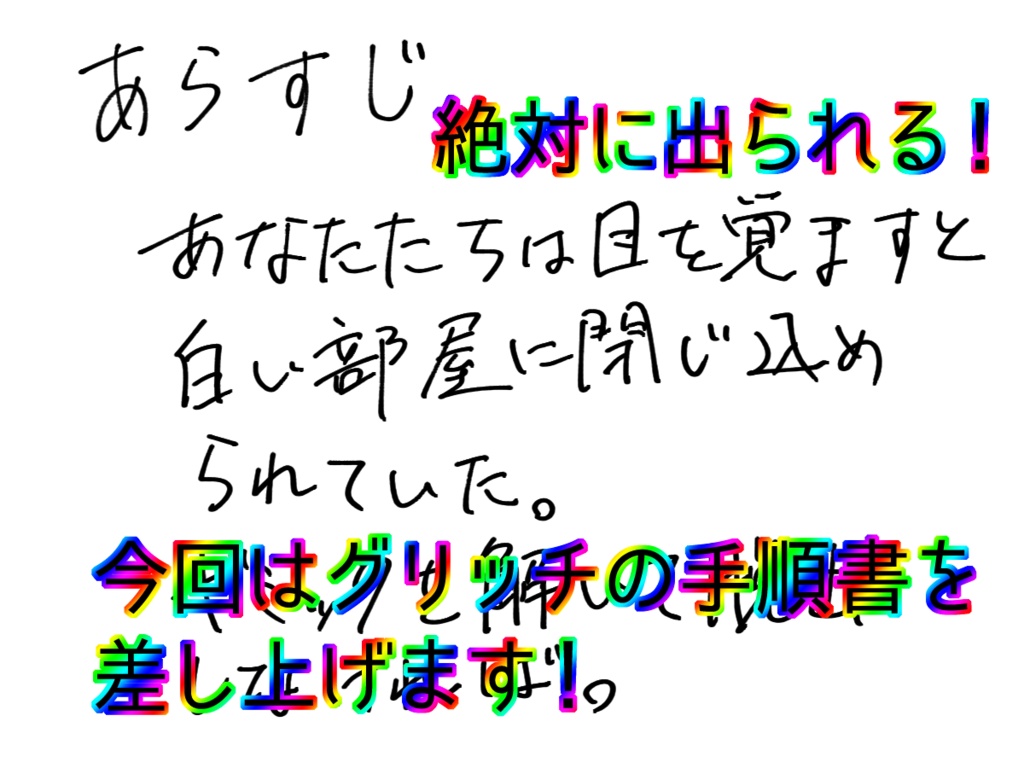 あらすじ
絶対に出られる！
あなたたちは目を覚ますと
白い部屋に閉じ込め
られていた。
今回はグリッチの手順書を
差し上げます！